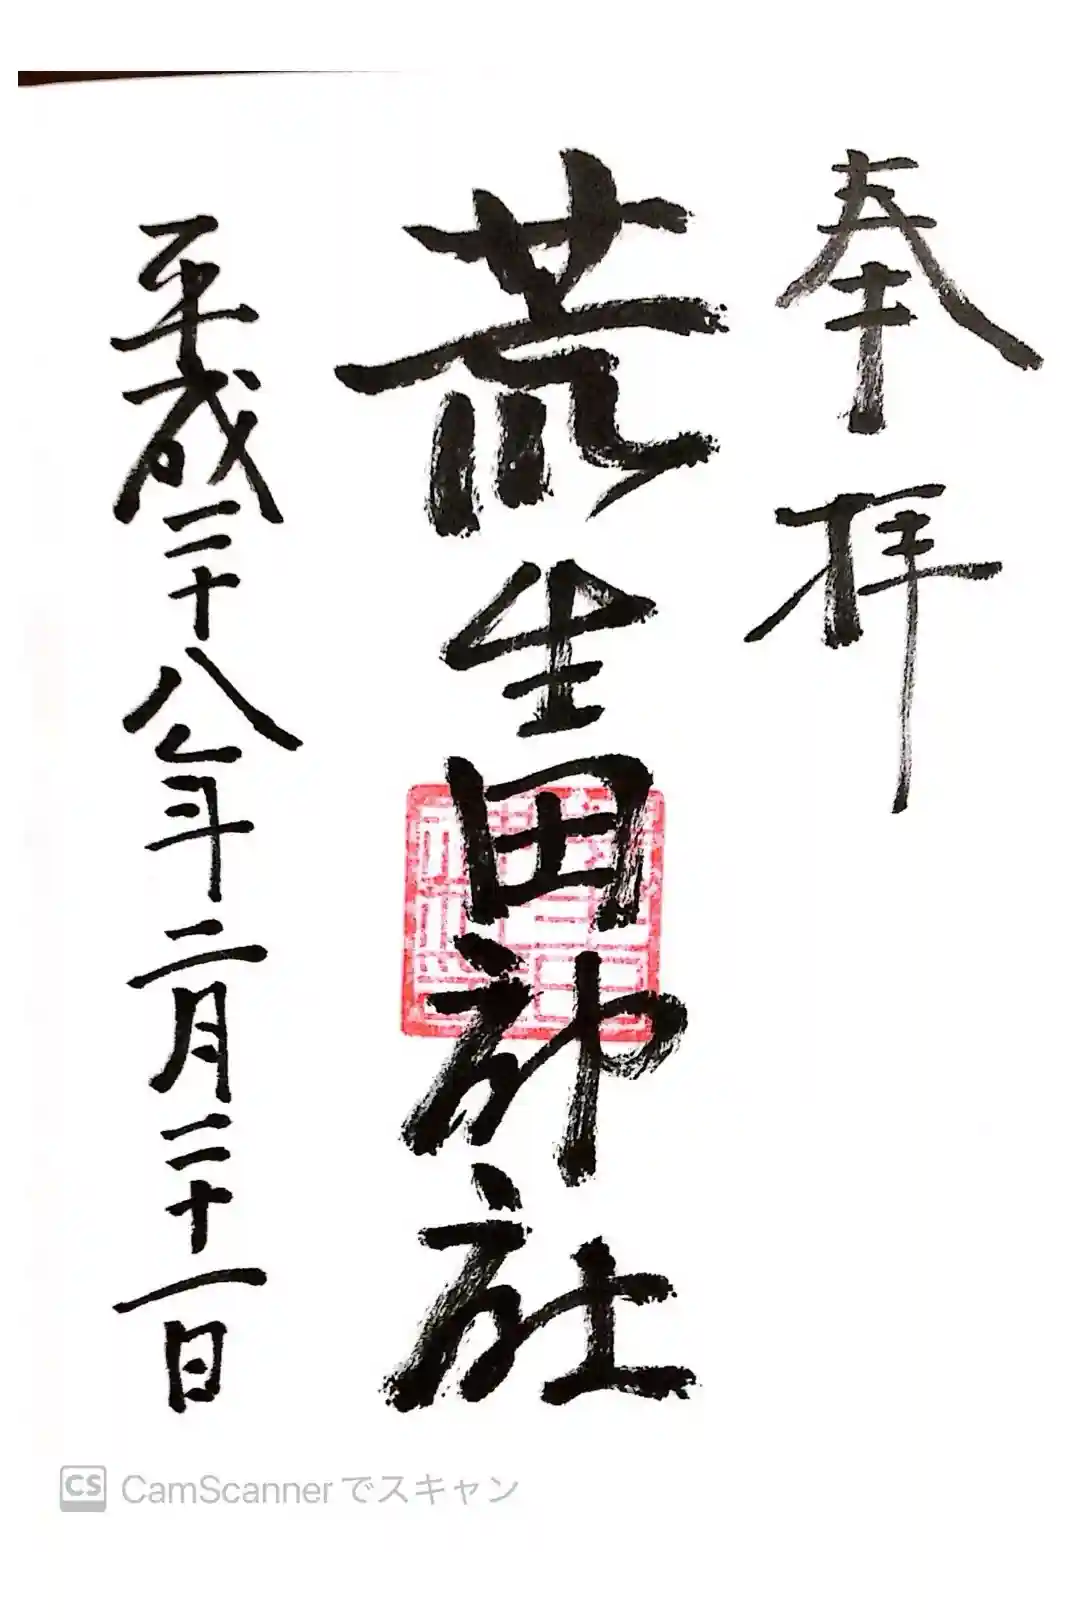 奉拝
荒生田神社
平成二十八年二月二十一日
CS CamScannerでスキャン